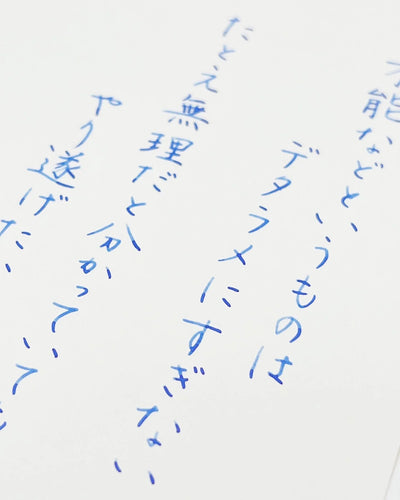 才能などというものは
デタラメにすぎない
たとえ無理だと分かっていても
やり遂げたい